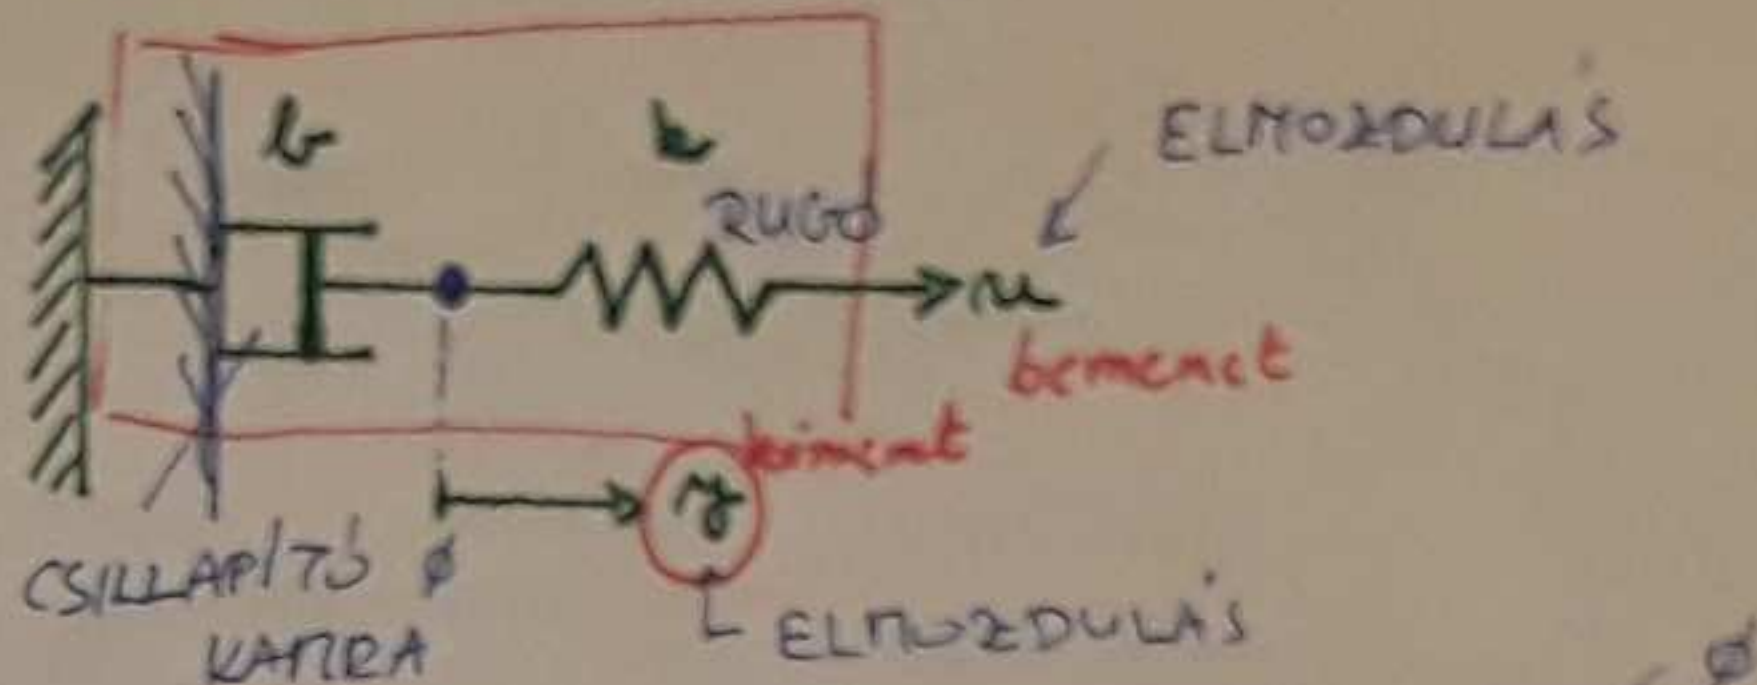 b
k
RUGÓ
ELMOZDULÁS
u
bemenet
kiment
y
CSILLAPÍTÓ
KAMRA
ø
ELMOZDULÁS
ø